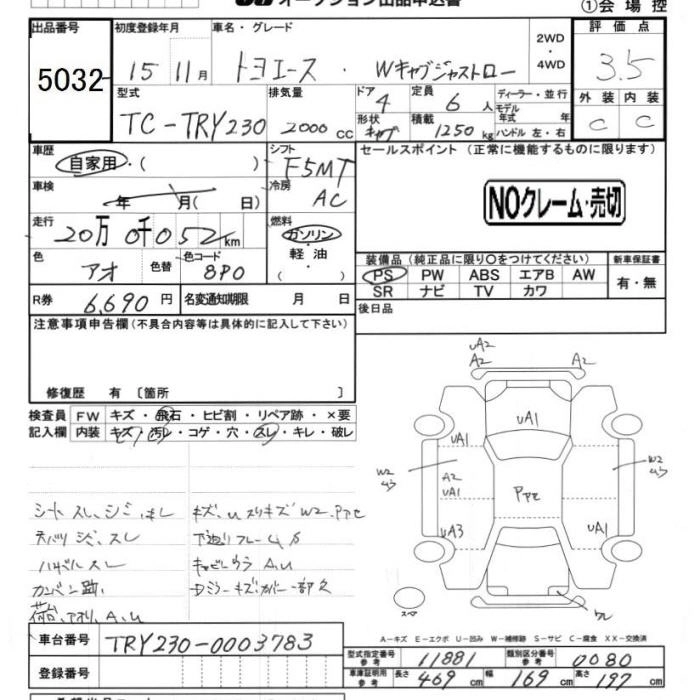 オークション出品申込書
①会場控
出品番号 初度登録年月 車名・グレード 2WD・4WD 評価点
5032 15 11月 トヨエース・Wキャブジャストロー 3.5
型式 排気量 ドア 4 定員 6人 ディーラー・並行 外装 内装
TC-TRY230 2000cc 形状 キャブ 積載 1250kg モデル年式 年式 ハンドル 左・右 C C
車歴 シフト セールスポイント (正常に機能するものに限ります)
自家用・( ) F5MT
車検 冷房 NOクレーム・売切
年 月( 日) AC
走行 燃料
20万0千052km ガソリン・軽油・( )
色 色替 色コード 装備品 (純正品に限り○をつけてください) 新車保証書
アオ 8P0 PS PW ABS エアB AW 有・無
R券 6,690円 名変通知期限 月 日 SR ナビ TV カワ
注意事項申告欄(不具合内容等は具体的に記入して下さい) 後日品
修復歴 有 〔箇所 〕
検査員 FW キズ・飛石・ヒビ割・リペア跡・×要
記入欄 内装 キズ・汚レ・コゲ・穴・スレ・キレ・破レ
uA2
A2 A2
uA1
uA1
W2 A2 W2
uA1
uA3 uA1
シートスレ、シミ、
ハンドルスレ
カンバン跡
荷台、アオリ、A、u
下廻りフレームサ
Dミラーキズカバー一部欠
A-キズ E-エクボ U-凹み W-補修跡 S-サビ C-腐食 XX-交換済
車台番号 TRY230-0003783 型式指定番号 参考 11881 類別区分番号 参考 0080
登録番号 車庫証明用 参考 長さ 469cm 幅 169cm 高さ 197cm